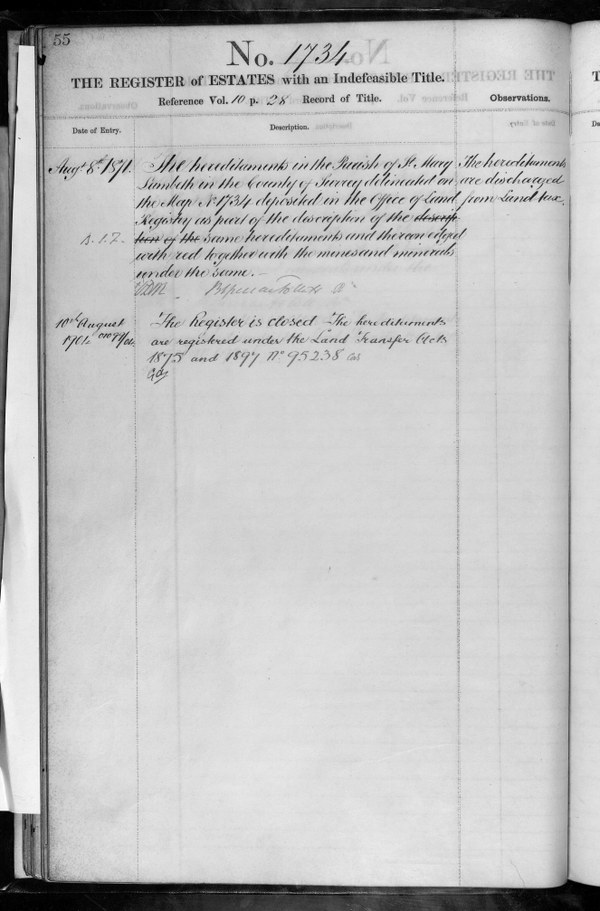 55
No. 1734
THE REGISTER of ESTATES with an Indefeasible Title.
Reference Vol. 10 p. 28 Record of Title.
Observations.
Date of Entry.
Description.
Augt 8th 1871.
The hereditaments in the Parish of St Mary
Lambeth in the County of Surrey delineated on
the Map No 1734 deposited in the Office of Land
Registry as part of the description of the descrip
tion of the same hereditaments and thereon edged
with red together with the mines and minerals
under the same.
The hereditaments
are discharged
from Land tax.
10th August
1901
The Register is closed The hereditaments
are registered under the Land Transfer Acts
1875 and 1897 No 95238